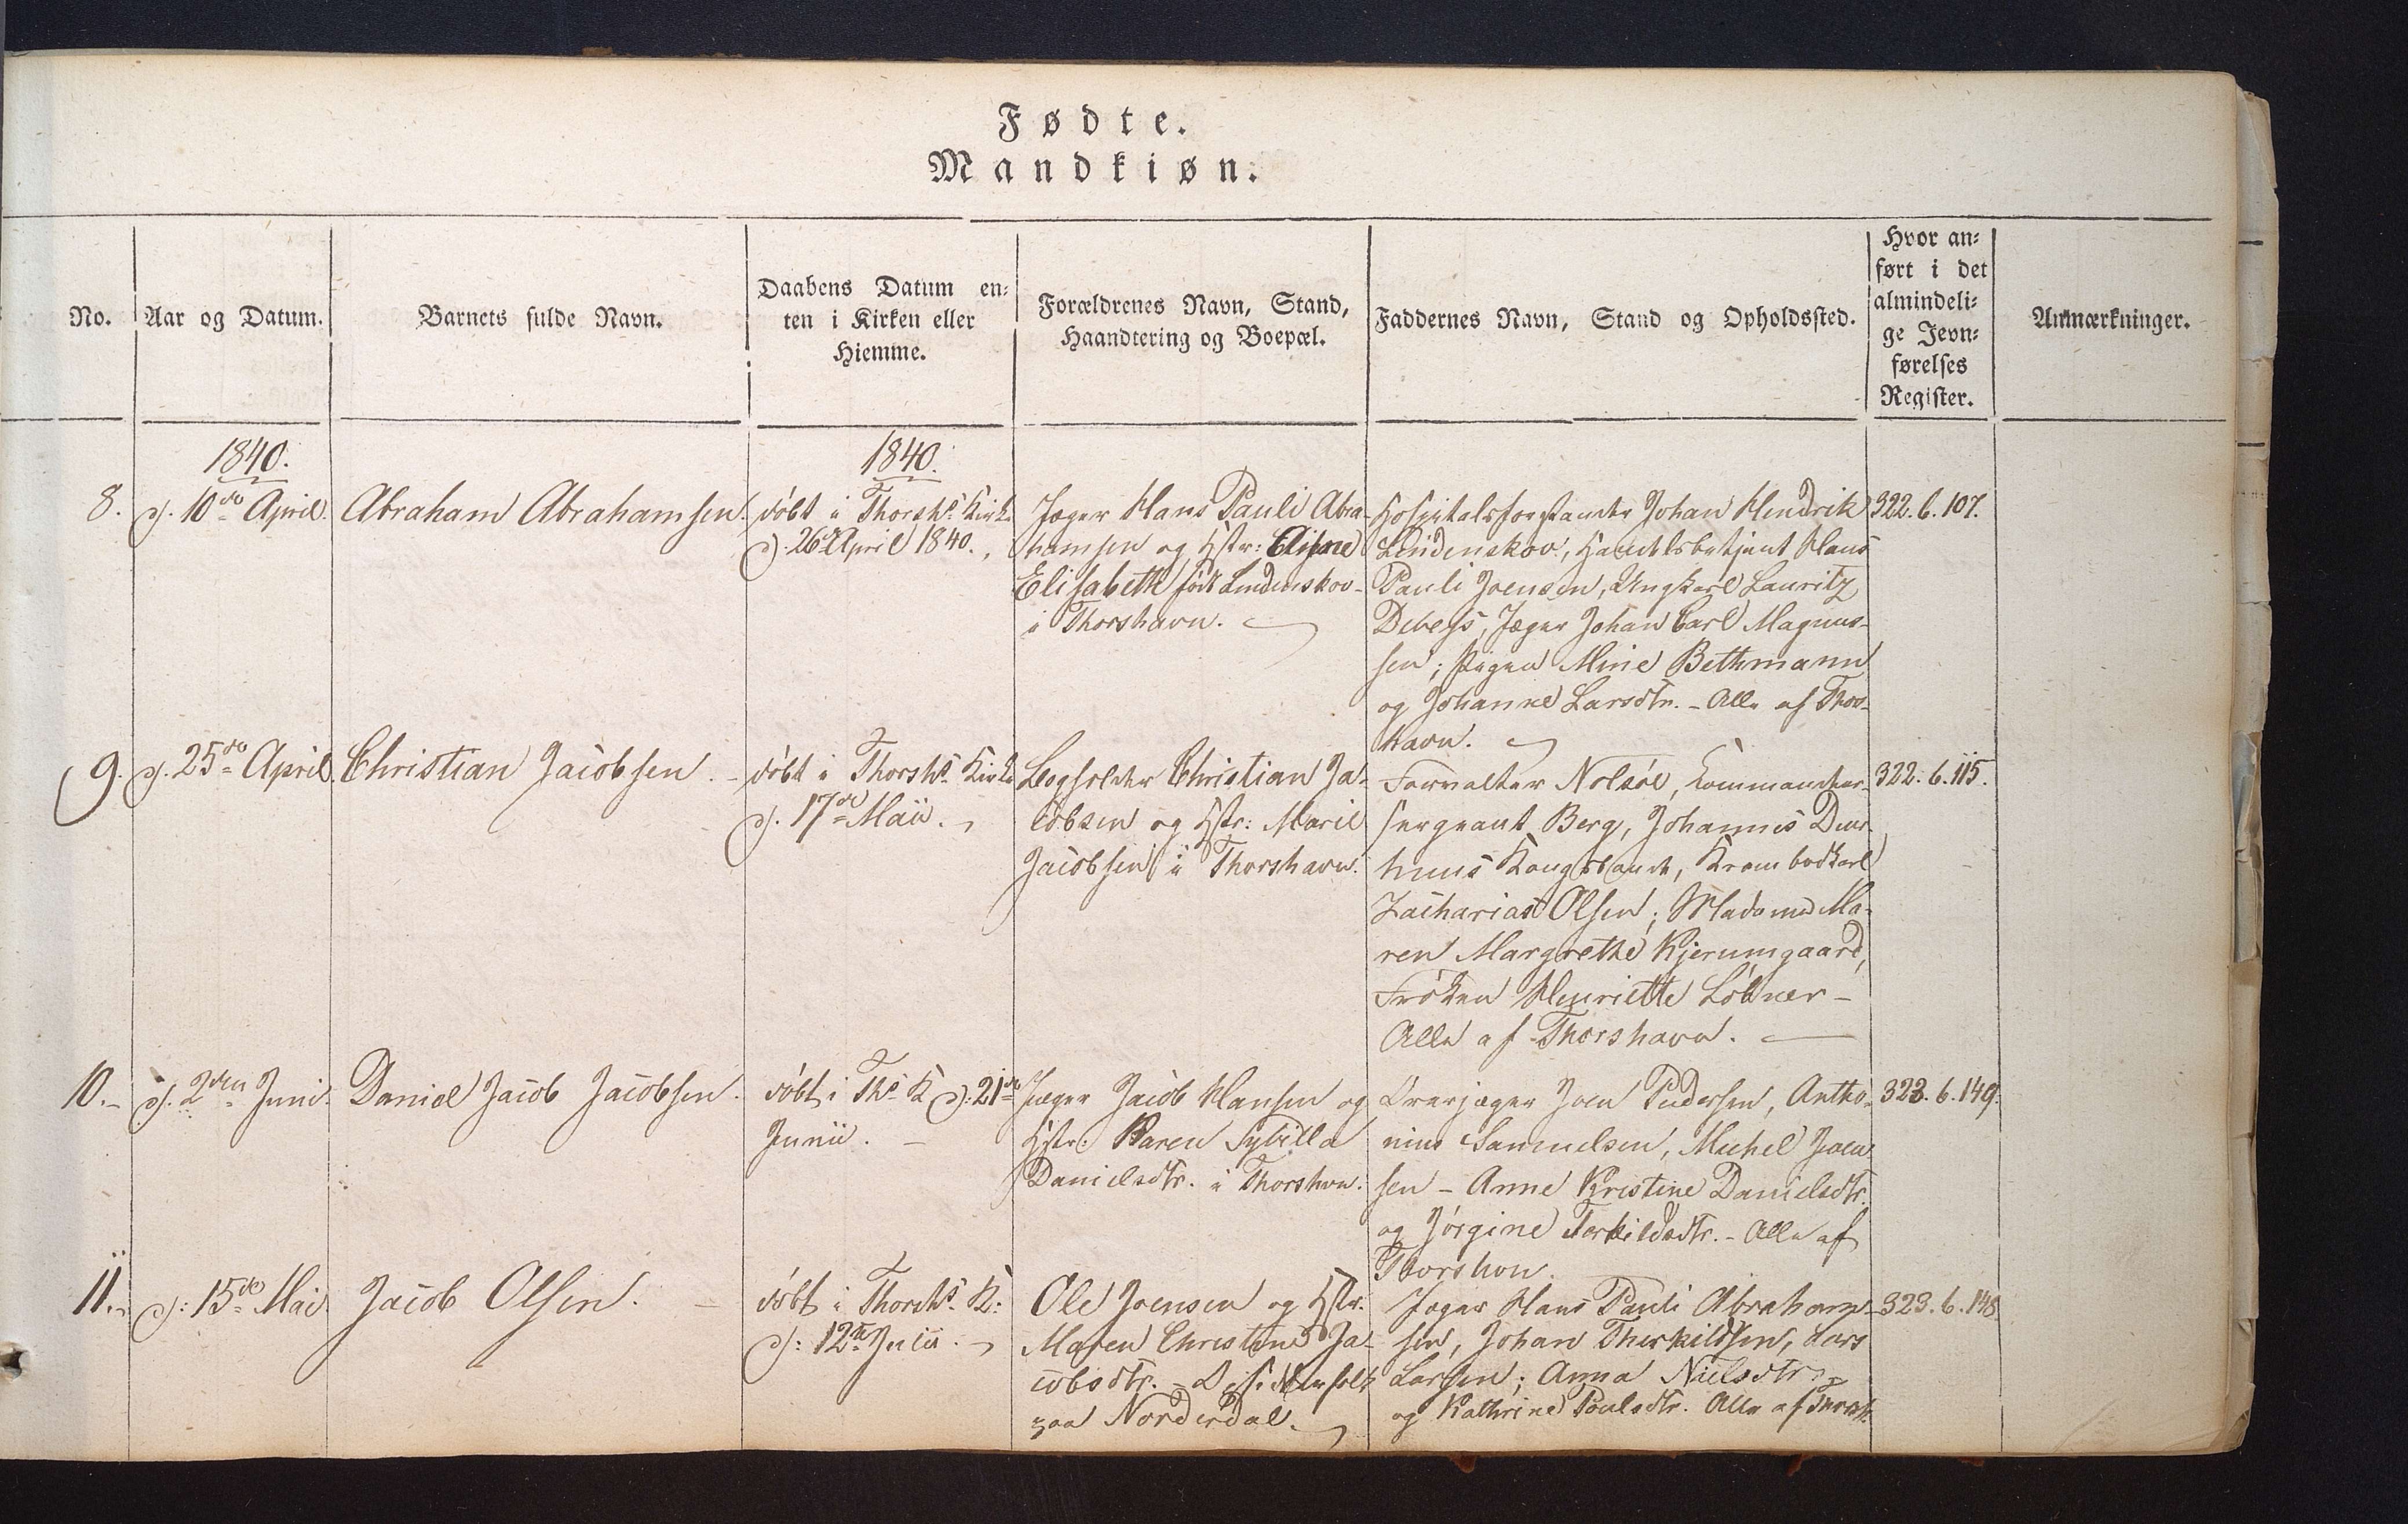 Fødte.
Mandkiøn.
No.
Aar og Datum.
Barnets fulde Navn.
Daabens Datum en-
ten i Kirken eller
Hiemme.
Forældrenes Navn, Stand,
Haandtering og Boepæl.
Faddernes Navn, Stand og Opholdssted.
Hvor an-
ført i det
almindeli-
ge Jevn-
førelses
Register.
Anmærkninger.
1840.
1840.
8.
d. 10de April.
Abraham Abrahamsen.
døbt i Thorshs. Kirke
d. 26 April 1840.
Jæger Hans Pauli Abra-
hamsen og Hstr:
Elisabeth født Lindenskov
i Thorshavn.
Hospitalsforstander Johan Hendrik
Lindenskov, Handelsbetjent Hans
Pauli Joensen, Ungkarl Lauritz
Debess, Jæger Johan Carl Magnus-
sen; Pigen Mine Bethmann
og Johanne Larsdtr. - Alle af Thors-
havn.
322. 6. 107.
9.
d. 25de April.
Christian Jacobsen.
døbt i Thorshs. Kirke
d. 17de Maii.
Logsolder Christian Ja-
cobsen og Hstr: Marie
Jacobsen i Thorshavn.
Forvalter Nolsöe, Commandeer-
sergeant Berg, Johannes Duur-
huus Kongsbonde, Krambodkarl
Zacharias Olsen; Madame Ma-
ren Margrethe Kjerumgaard,
Frøken Henriette Löbner -
Alle af Thorshavn.
322. 6. 115.
10.
d. 2den Juni.
Daniel Jacob Jacobsen.
døbt i Ths. K. d. 21de
Junii.
Jæger Jacob Hansen og
Hstr: Karen Sybilla
Danielsdtr. i Thorshvn.
Overjæger Joen Pedersen, Antho-
nius Samuelsen, Michel Joen-
sen - Anne Kristine Danielsdtr.
og Jørgine Terkildsdtr. - Alle af
Thorshvn.
323. 6. 149.
11.
d: 15de Mai
Jacob Olsen.
døbt i Thorshs. K:
d: 12te Julii.
Ole Joensen og Hstr.
Maren Christine Ja-
cobsdtr. -
paa Norderdal.
Jæger Hans Pauli Abraham-
sen, Johan Therkildsen, Lars
Larsen; Anna Nielsdtr.
og Kathrine Poulsdtr. Alle af Thorsh.
323. 6. 148.